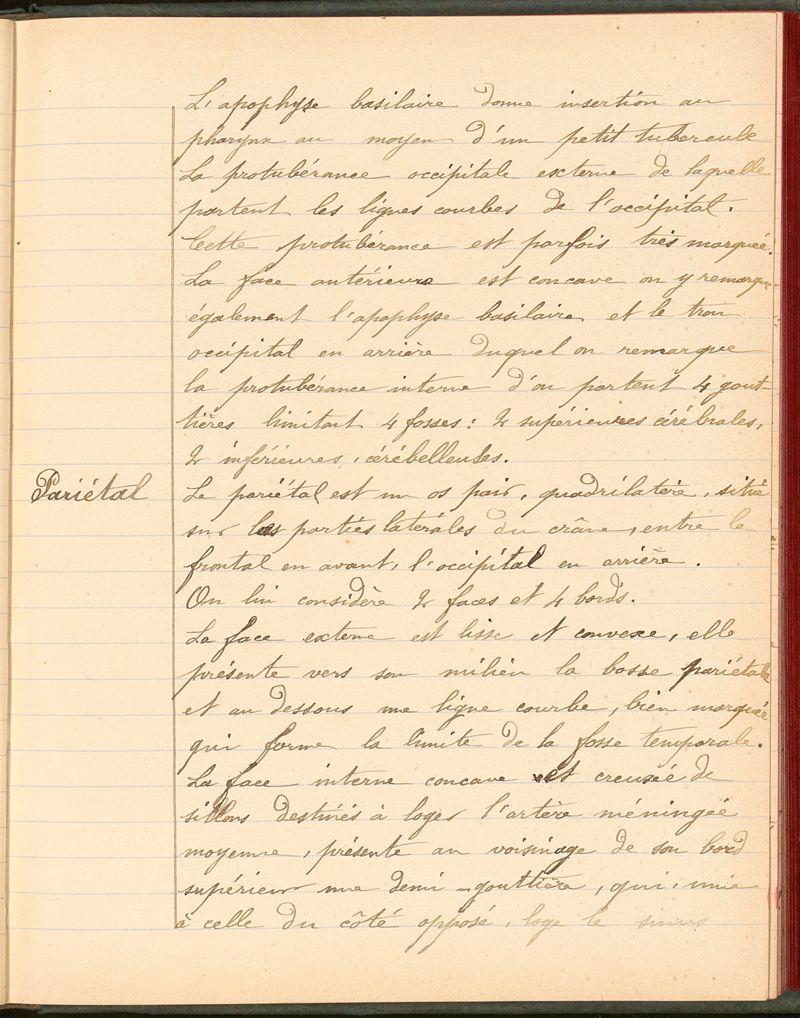 L'apophyse basilaire donne insertion au
pharynx au moyen d'un petit tubercule
La protubérance occipitale externe de laquelle
partent les lignes courbes de l'occipital.
Cette protubérance est parfois très marquée.
La face antérieure est concave on y remarque
également l'apophyse basilaire et le trou
occipital en arrière duquel on remarque
la protubérance interne d'ou partent 4 gout-
tières limitant 4 fosses : 2 supérieures cérébrales,
2 inférieures, cérébelleuses.
Pariétal
Le pariétal est un os pair, quadrilatère, situé
sur les parties latérales du crâne, entre le
frontal en avant, l'occipital en arrière.
On lui considère 2 faces et 4 bords.
La face externe est lisse et convexe, elle
présente vers son milieu la bosse pariétale
et au dessous une ligne courbe, bien marquée
qui forme la limite de la fosse temporale.
La face interne concave est creusée de
sillons destinés à loger l'artère méningée
moyenne, présente au voisinage de son bord
supérieur une demi-gouttière, qui, unie
à celle du côté opposé, loge le sinus